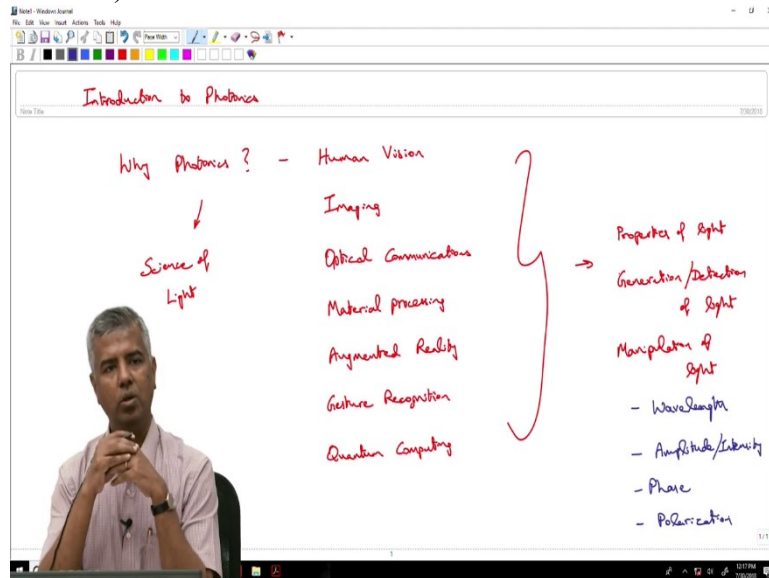 Note1 - Windows Journal
File Edit View Insert Actions Tools Help
Page Width
B I
Introduction to Photonics
Note Title
7/30/2018
Why Photonics? - Human Vision
Science of
Light
Imaging
Optical Communications
Material processing
Augmented Reality
Gesture Recognition
Quantum Computing
Properties of light
Generation/Detection
of light
Manipulation of
light
- Wavelength
- Amplitude/Intensity
- Phase
- Polarization
1/1
1
12:17 PM
7/30/2018